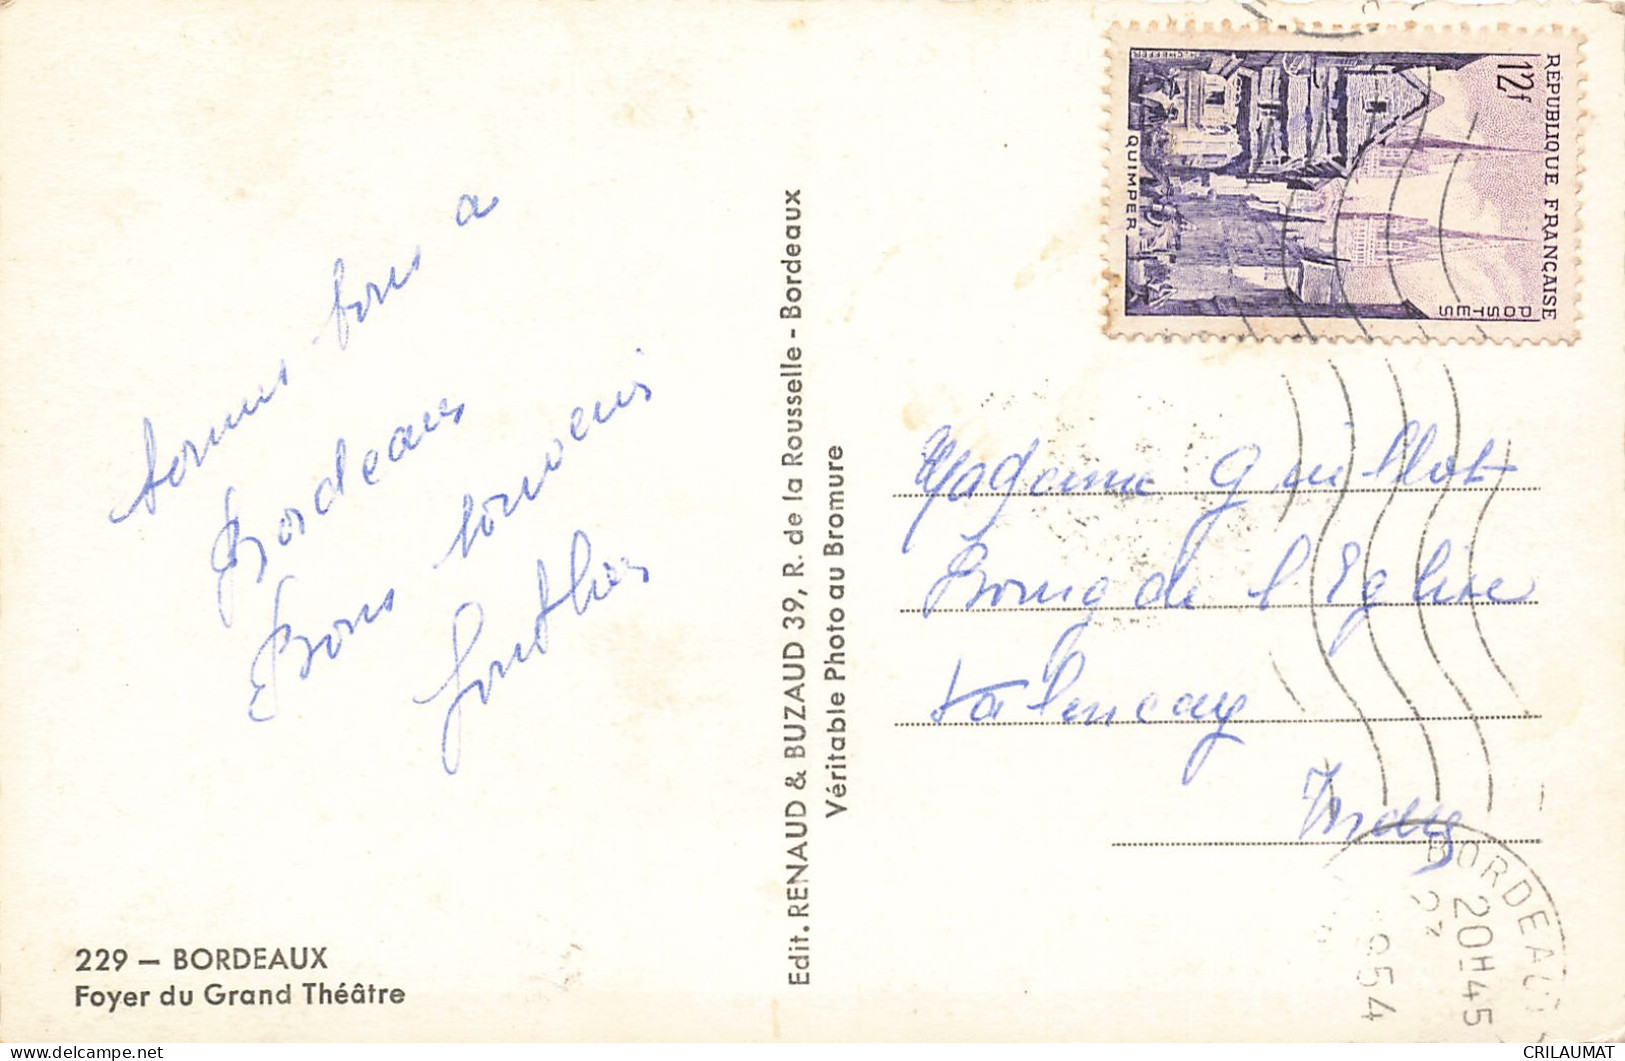 sommes bons a
Bordeaux
Bons souvenirs
229 — BORDEAUX
Foyer du Grand Théâtre
Edit. RENAUD & BUZAUD 39, R. de la Rousselle - Bordeaux
Véritable Photo au Bromure
RÉPUBLIQUE FRANÇAISE
12f
POSTES
QUIMPER
Madame Guillot
Bourg de l'Eglise
Valencay
Indre
BORDEAUX
20H45
1954
CRILAUMAT